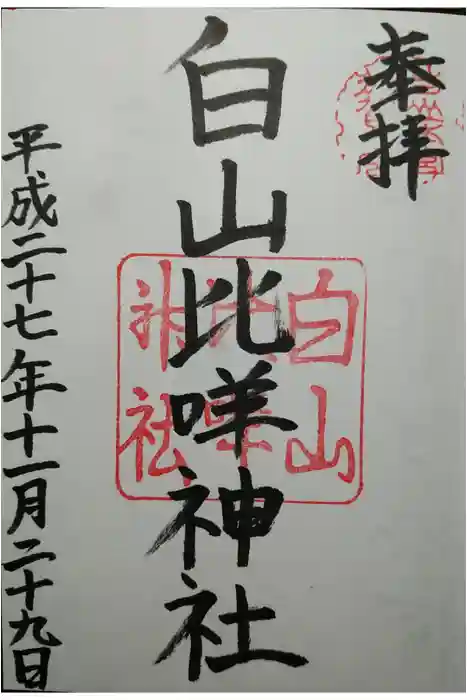 奉拝
白山比咩神社
白山
比咩
神社
平成二十七年十一月二十九日